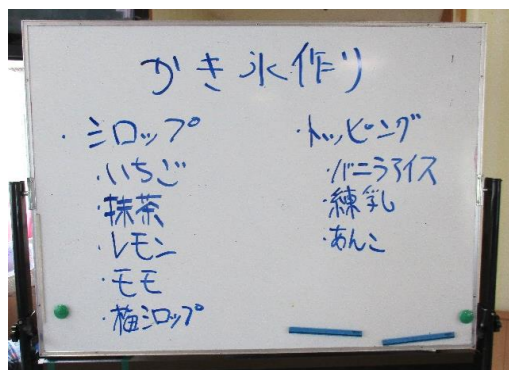 かき氷作り
・シロップ
・いちご
・抹茶
・レモン
・モモ
・梅シロップ
・トッピング
・バニラアイス
・練乳
・あんこ